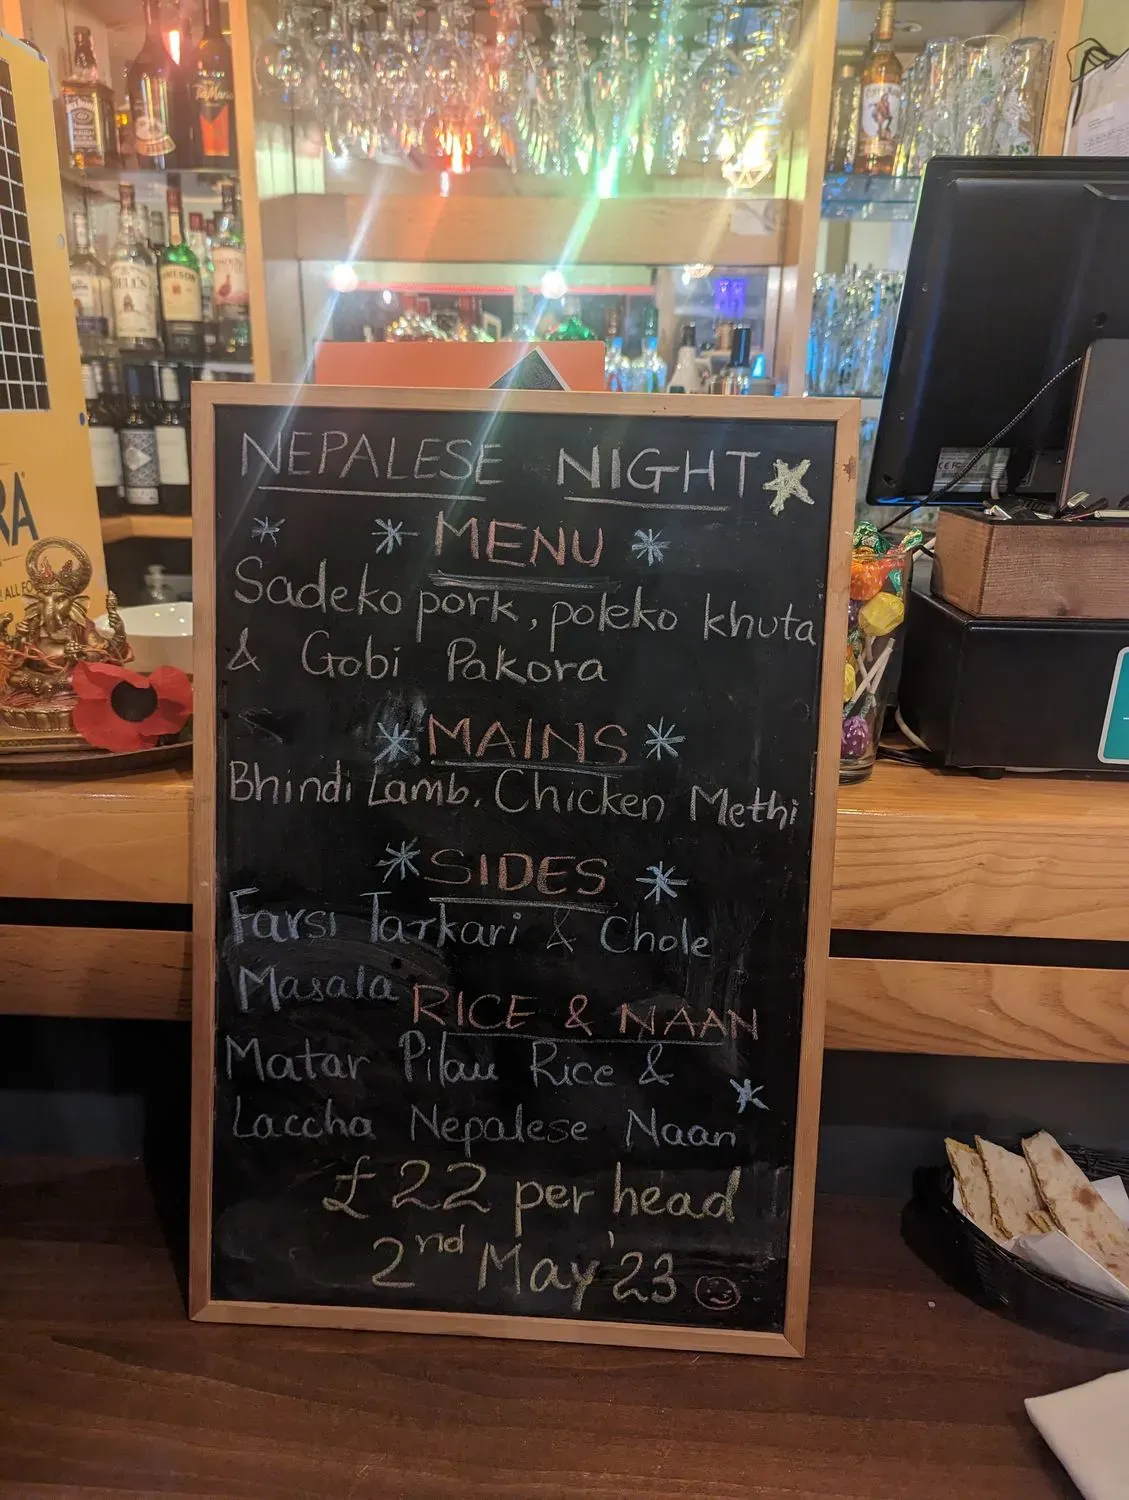 NEPALESE NIGHT
MENU
Sadeko pork, poleko khuta
& Gobi Pakora
MAINS
Bhindi Lamb, Chicken Methi
SIDES
Farsi Tarkari & Chole
Masala
RICE & NAAN
Matar Pilau Rice &
Laccha Nepalese Naan
£22 per head
2nd May '23
RA